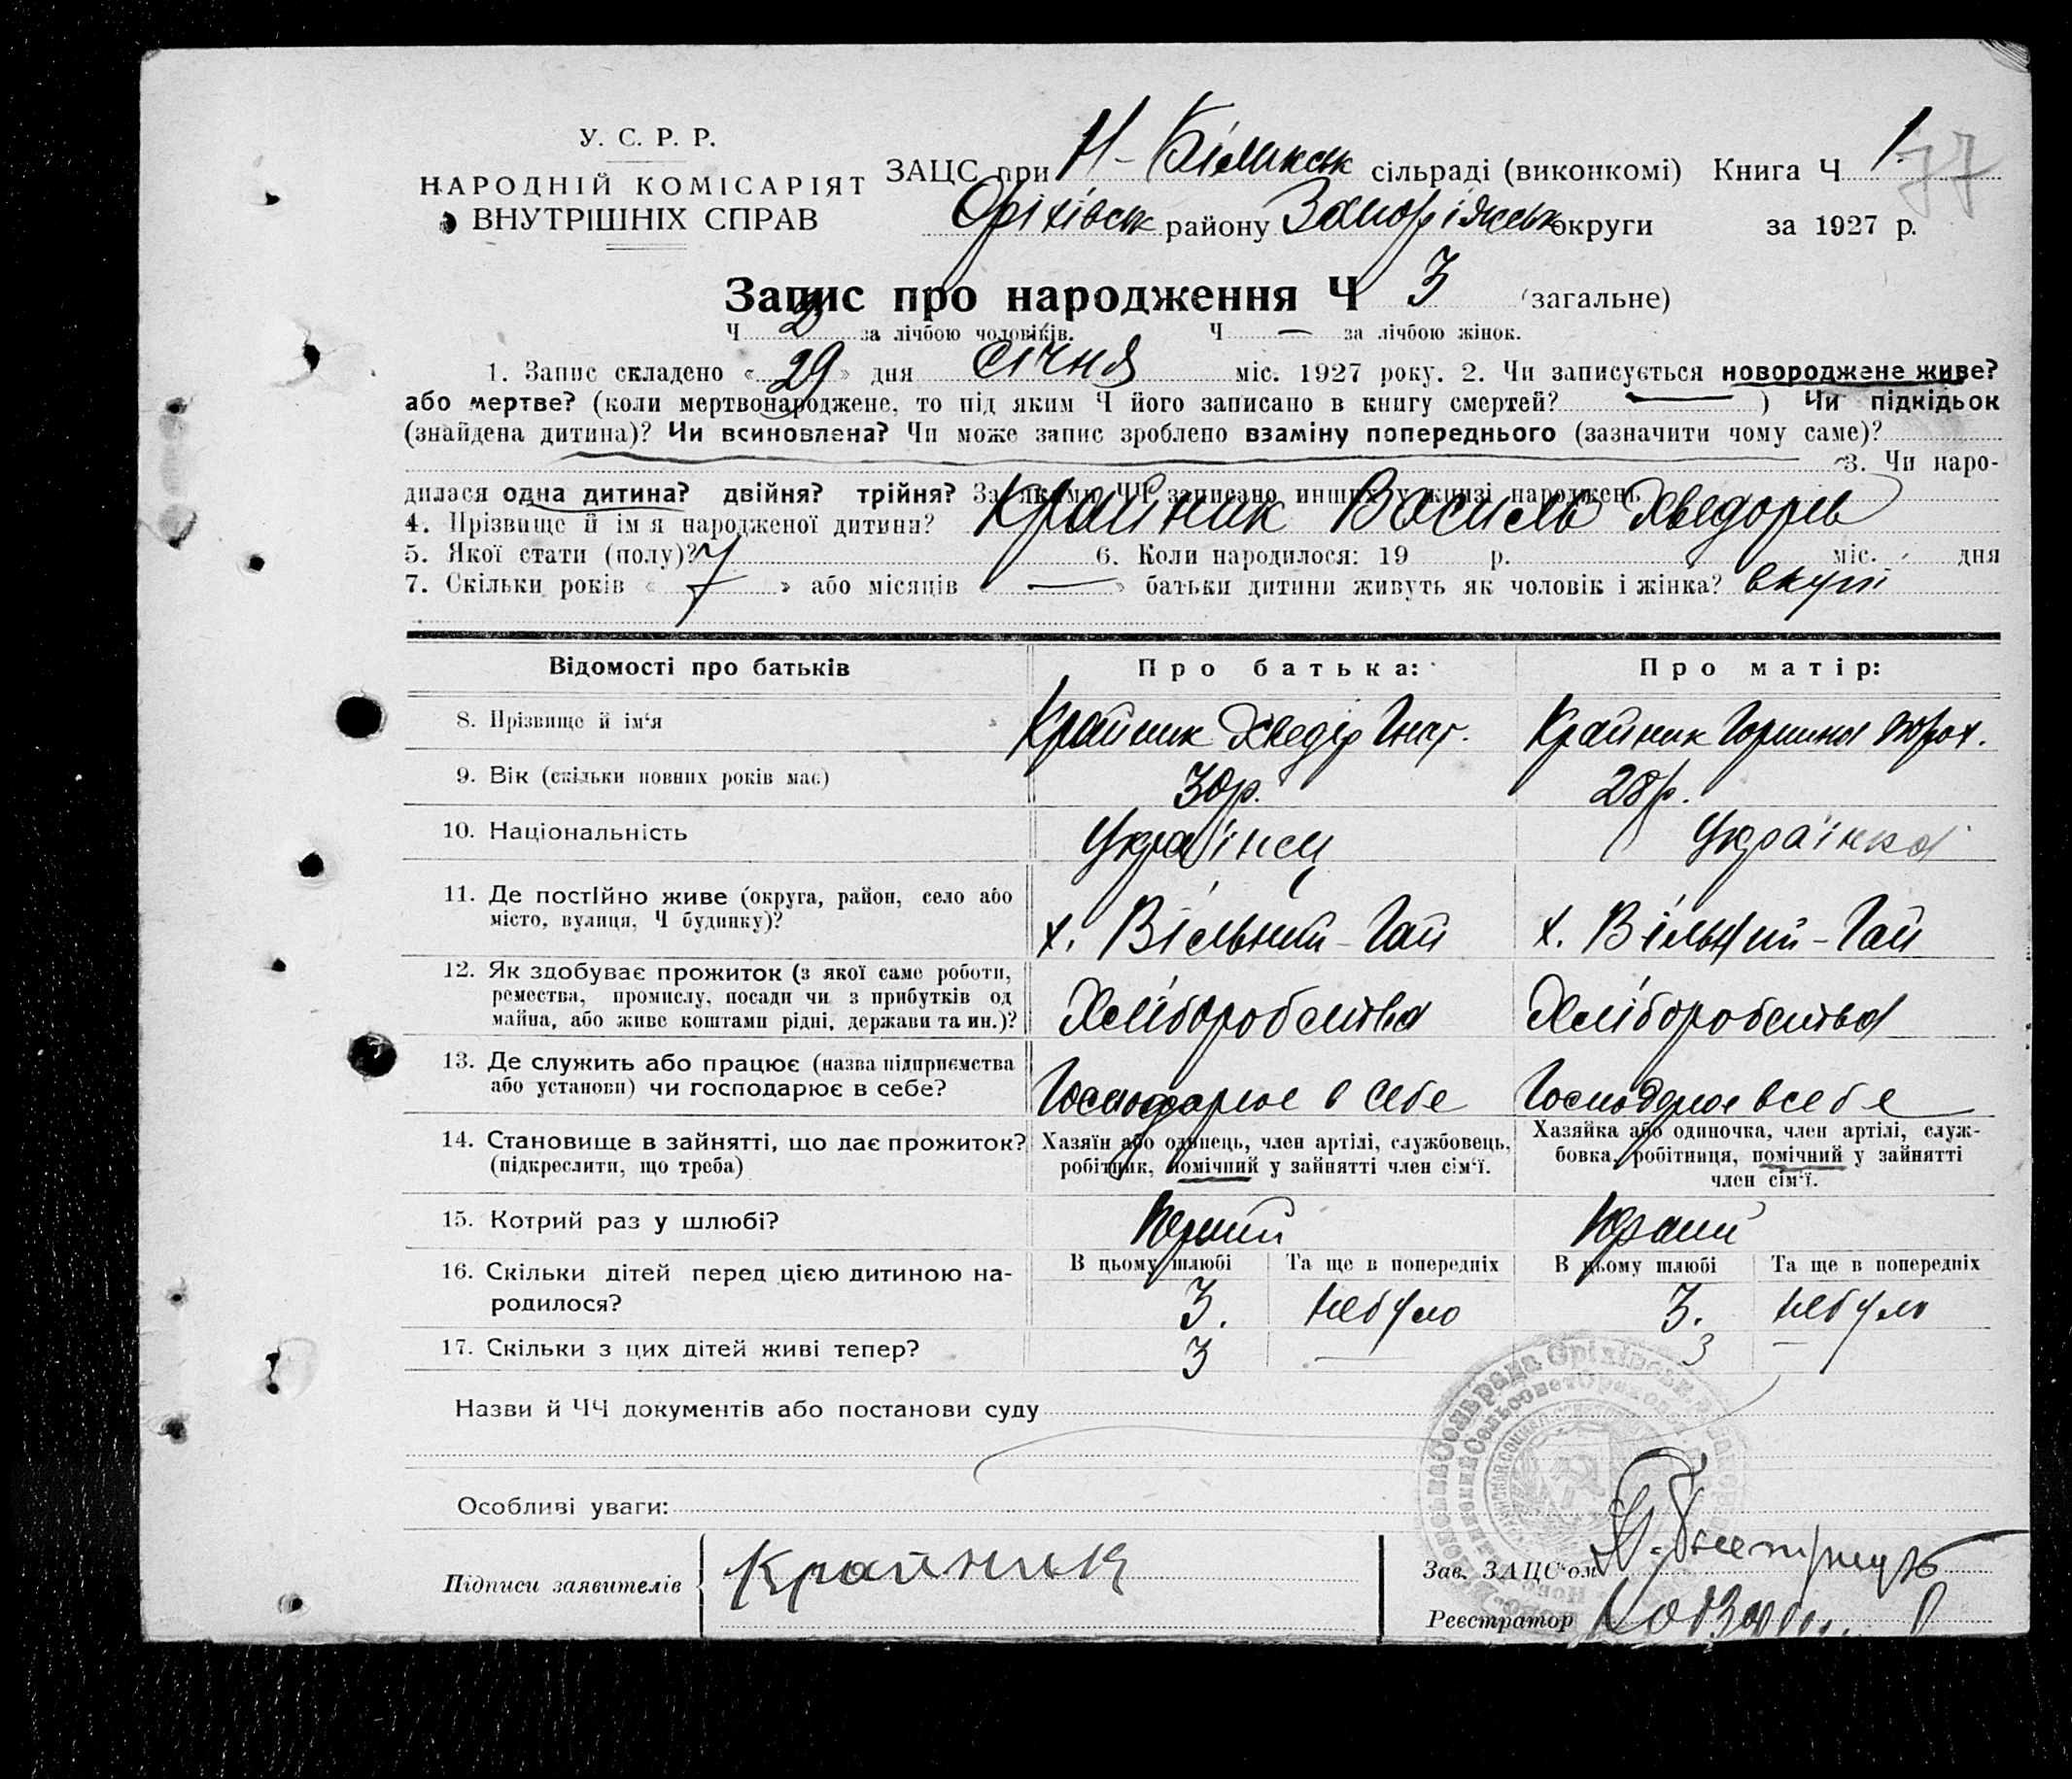 У. С. Р. Р.
НАРОДНІЙ КОМІСАРІЯТ
ВНУТРІШНІХ СПРАВ
ЗАЦС при Н-Білманк сільраді (виконкомі) Книга Ч 1. 77
Оріхівськ району Запоріжськ округи за 1927 р.
Запис про народження Ч 3 (загальне)
Ч 2 за лічбою чоловіків. Ч — за лічбою жінок.
1. Запис складено « 29 » дня січня міс. 1927 року. 2. Чи записується новороджене живе?
або мертве? (коли мертвонароджене, то під яким Ч його записано в книгу смертей? — ) Чи підкідьок
(знайдена дитина)? Чи всиновлена? Чи може запис зроблено взаміну попереднього (зазначити чому саме)?
3. Чи наро-
дилася одна дитина? двійня? трійня? За якими ЧЧ записано инших у книзі народжень
4. Прізвище й ім я народженої дитини? Крайник Василь Хведорів
5. Якої стати (полу)? Ч 6. Коли народилося: 19 р. міс. дня
7. Скільки років « 7 » або місяців « — » батьки дитини живуть як чоловік і жінка? вкупі
Відомості про батьків Про батька: Про матір:
8. Прізвище й ім‘я Крайник Хведір Гнат. Крайник Горпина
9. Вік (скільки повних років має) 30р. 28р.
10. Національність Українец Українка
11. Де постійно живе (округа, район, село або
місто, вулиця, Ч будинку)? х. Вільний-Гай х. Вільний-Гай
12. Як здобуває прожиток (з якої саме роботи,
ремества, промислу, посади чи з прибутків од
майна, або живе коштами рідні, держави та ин.)? Хліборобства Хліборобства
13. Де служить або працює (назва підприємства
або установи) чи господарює в себе? Господарює в себе Господарює в себе
14. Становище в зайнятті, що дає прожиток?
(підкреслити, що треба)
Хазяїн або одинець, член артілі, службовець,
робітник, помічний у зайнятті член сім‘ї.
Хазяйка або одиночка, член артілі, служ-
бовка, робітниця, помічний у зайнятті
член сім‘ї.
15. Котрий раз у шлюбі? Перший Перший
В цьому шлюбі Та ще в попередніх В цьому шлюбі Та ще в попередніх
16. Скільки дітей перед цією дитиною на-
родилося? 3. небуло 3. небуло
17. Скільки з цих дітей живі тепер? 3 — 3 —
Назви й ЧЧ документів або постанови суду
Особливі уваги:
Підписи заявителів Крайник
Зав. ЗАЦС‘ом
Реєстратор